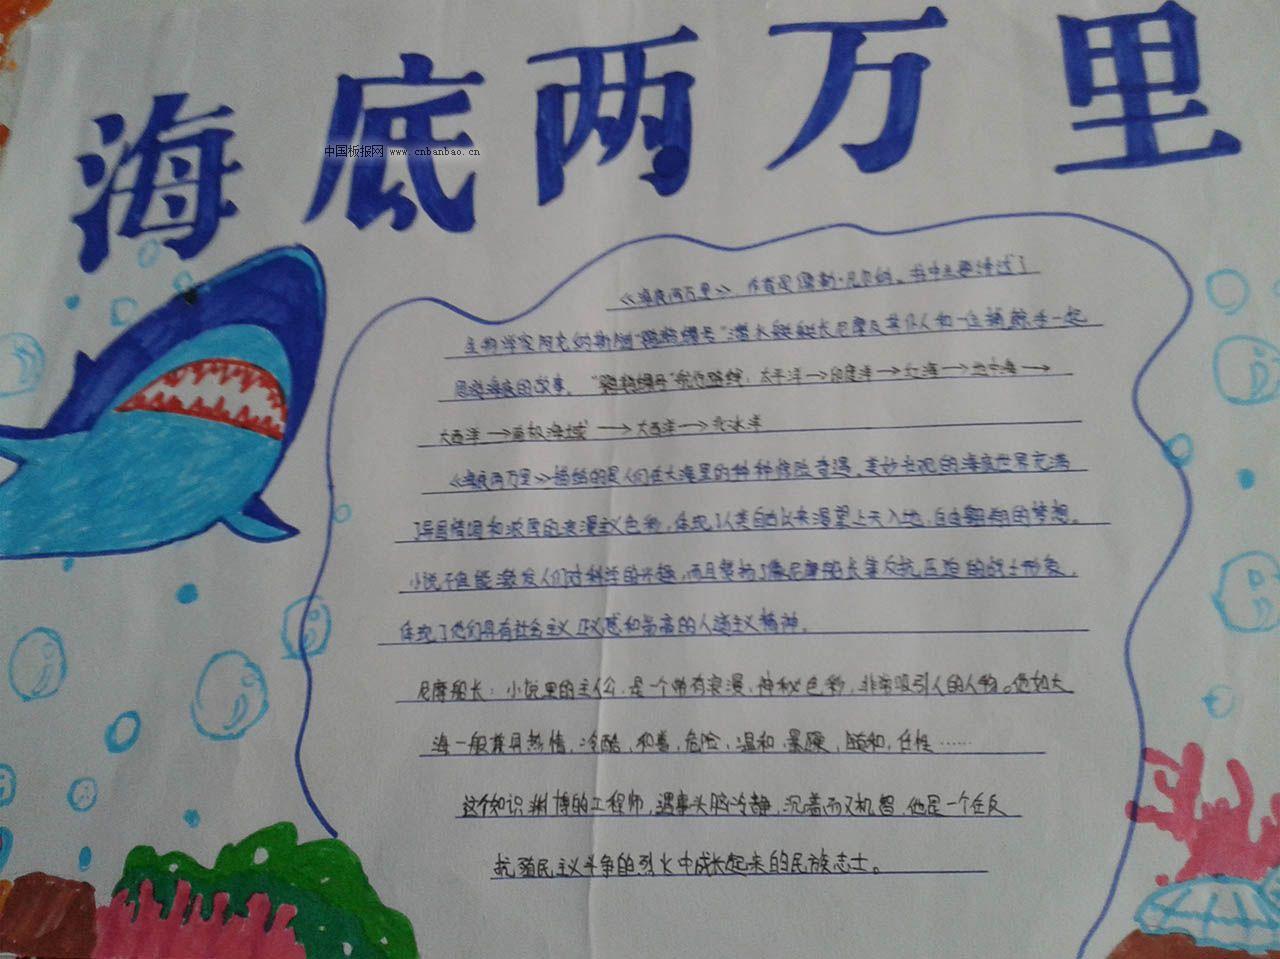 海底两万里
中国板报网 www.cnbanbao.cn
《海底两万里》，作者是儒勒·凡尔纳。书中主要讲过了
生物学家阿龙纳斯随“鹦鹉螺号”潜水艇艇长尼摩及其仆人和一位捕鲸手一起
周游海底的故事。“鹦鹉螺号”航行路线：太平洋→印度洋→红海→地中海→
大西洋→南极海域→大西洋→北冰洋
《海底两万里》描绘的是人们在大海里的种种惊险奇遇。美妙壮观的海底世界充满
了异国情调和浓厚的浪漫主义色彩，体现了人类自古以来渴望上天入地、自由翱翔的梦想。
小说不但能激发人们对科学的兴趣，而且赞扬了像尼摩船长等反抗压迫的战士形象，
体现了他们具有社会主义正义感和崇高的人道主义精神。
尼摩船长：小说里的主人公，是一个带有浪漫、神秘色彩，非常吸引人的人物。他如大
海一般兼具热情，冷酷，和善，危险，温和，暴戾，随和，任性……
这个知识渊博的工程师，遇事头脑冷静，沉着而又机智，他是一个在反
抗殖民主义斗争的烈火中成长起来的民族志士。